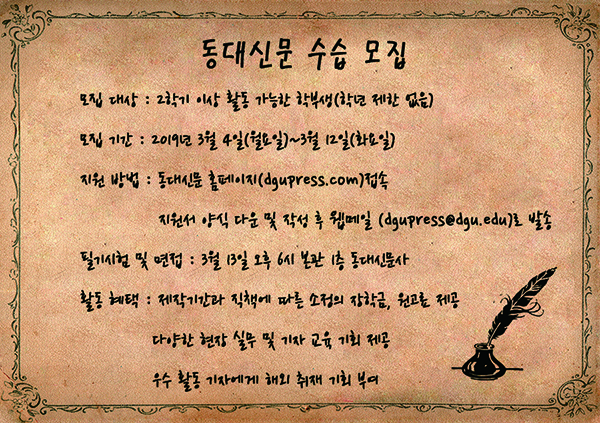 동대신문 수습 모집
모집 대상 : 2학기 이상 활동 가능한 학부생(학년 제한 없음)
모집 기간 : 2019년 3월 4일(월요일)~3월 12일(화요일)
지원 방법 : 동대신문 홈페이지(dgupress.com)접속
지원서 양식 다운 및 작성 후 웹메일 (dgupress@dgu.edu)로 발송
필기시험 및 면접 : 3월 13일 오후 6시 본관 1층 동대신문사
활동 혜택 : 제작기간과 직책에 따른 소정의 장학금, 원고료 제공
다양한 현장 실무 및 기자 교육 기회 제공
우수 활동 기자에게 해외 취재 기회 부여